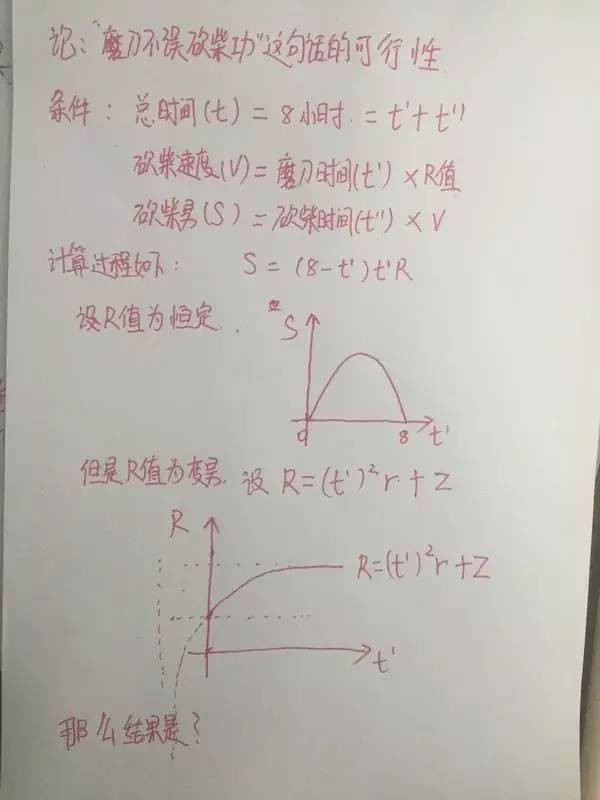 论:"磨刀不误砍柴功"这句话的可行性
条件: 总时间(t) = 8小时. = t' + t''
砍柴速度(V) = 磨刀时间(t') × R值
砍柴量(S) = 砍柴时间(t'') × V
计算过程如下: S = (8-t')t'R
设R值为恒定.
S
0
8
t'
但是R值为变量. 设 R=(t')²r + Z
R
R=(t')²r+Z
t'
那么结果是?